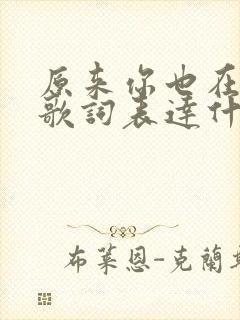 原来你也在
歌詞表達什
布萊恩-克蘭